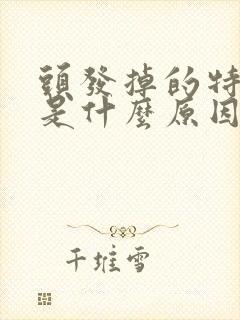 頭發掉的特
是什麼原因
千堆雪